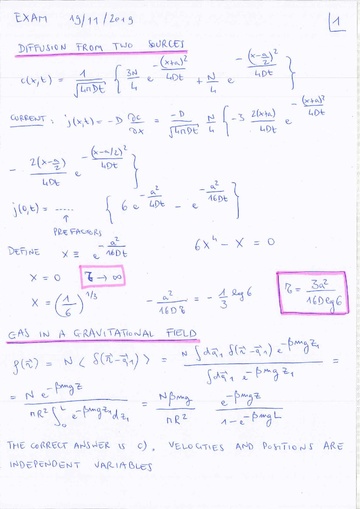 EXAM 19/11/2019
1
DIFFUSION FROM TWO SOURCES
c(x,t) = 1/√(4πDt) { 3N/4 e^{-(x+a)²/4Dt} + N/4 e^{-(x-a/2)²/4Dt} }
CURRENT: j(x,t) = -D ∂c/∂x = -D/√(4πDt) N/4 { -3 2(x+a)/4Dt e^{-(x+a)²/4Dt}
- 2(x-a/2)/4Dt e^{-(x-a/2)²/4Dt} }
j(0,t) = ..... { 6 e^{-a²/4Dt} - e^{-a²/16Dt} }
↑
PREFACTORS
DEFINE X ≡ e^{-a²/16Dt} 6X⁴ - X = 0
X = 0 τ → ∞
X = (1/6)^{1/3} -a²/16Dτ = -1/3 log 6 τ = 3a²/16D log 6
GAS IN A GRAVITATIONAL FIELD
ρ(r⃗) = N < δ(r⃗-q⃗₁) > = N ∫dq⃗₁ δ(r⃗-q⃗₁) e^{-βmgz₁} / ∫dq⃗₁ e^{-βmgz₁} =
= N e^{-βmgz} / πR² ∫₀^L e^{-βmgz₁} dz₁ = Nβmg/πR² e^{-βmgz}/1-e^{-βmgL}
THE CORRECT ANSWER IS c), VELOCITIES AND POSITIONS ARE
INDEPENDENT VARIABLES